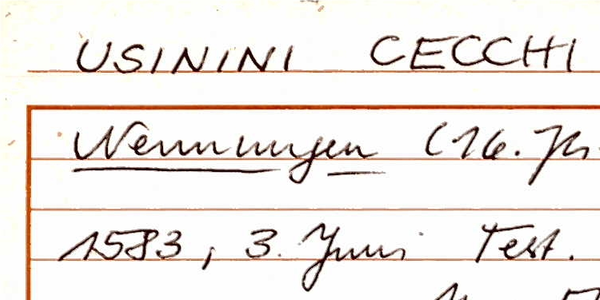 USININI CECCHI
Nennungen (16. Jh.
1583, 3. Juni Test.